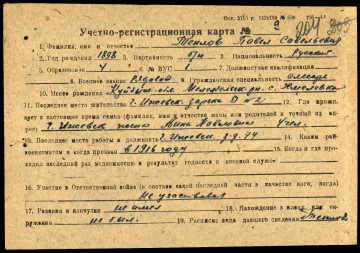 Учетно-регистрационная карта № 9
1. Фамилия, имя и отчество Теплов Павел Савельевич
2. Год рождения 1898 3. Партийность б/п 4. Национальность Русский
5. Образование 4 6. № ВУС 7. Должностная квалификация
8. Военное звание Рядовой 9. Гражданская специальность слесарь
10. Место рождения обл. с.
11. Последнее место жительства г. Ижевск 12. Где прожи-
вает в настоящее время семья (фамилия, имя и отчество жены или родителей и точный их ад-
рес) г. Ижевск жена Анна Павловна
13. Последнее место работы и должность г. Ижевск з-д 74 14. Каким рай-
военкоматом и когда призван в 1916 году 15. Когда и где про-
ходил последний раз медкомиссию и результат годности к военной службе
16. Участие в Отечественной войне (в составе какой последней части в качестве кого, когда)
Не участвовал
17. Ранения и контузии не имел 18. Нахождение в плену или ок-
ружении не был. 19. Расписка лица давшего сведения Теплов